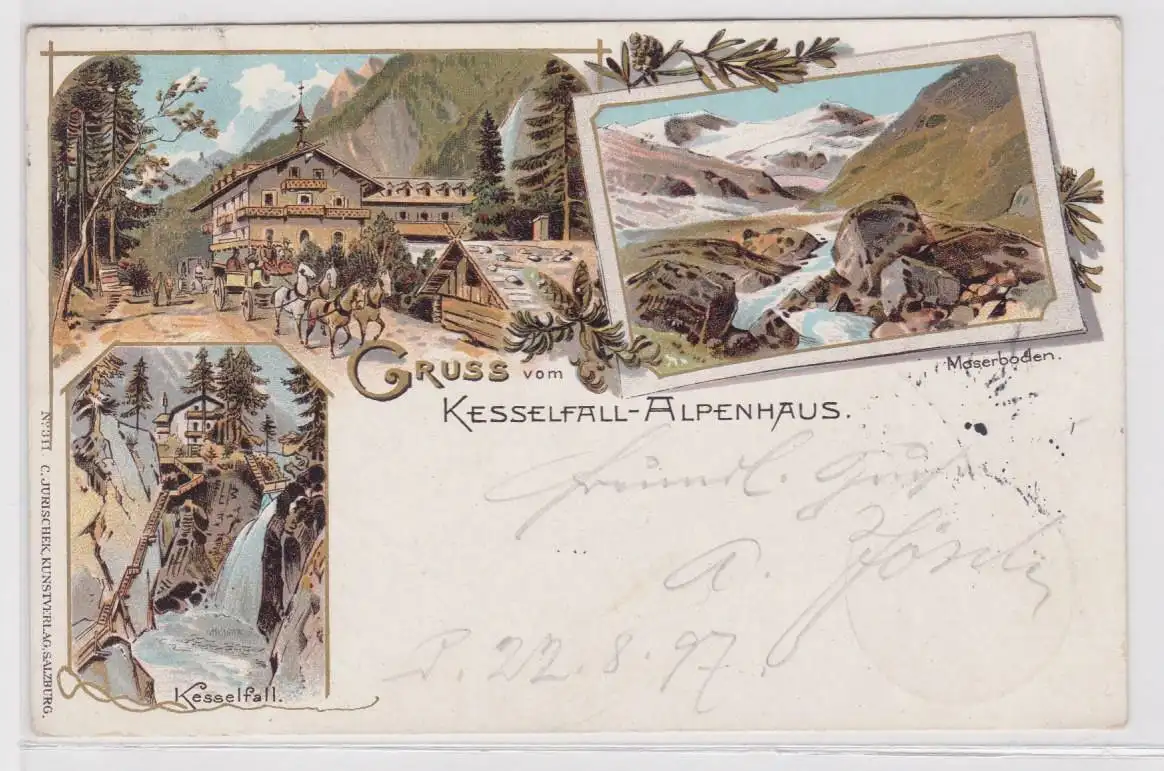 GRUSS vom
KESSELFALL-ALPENHAUS.
Moserboden.
Kesselfall.
No. 311 C. JURISCHEK, KUNSTVERLAG, SALZBURG.
Freundl. Gruß
A.
22. 8. 97.